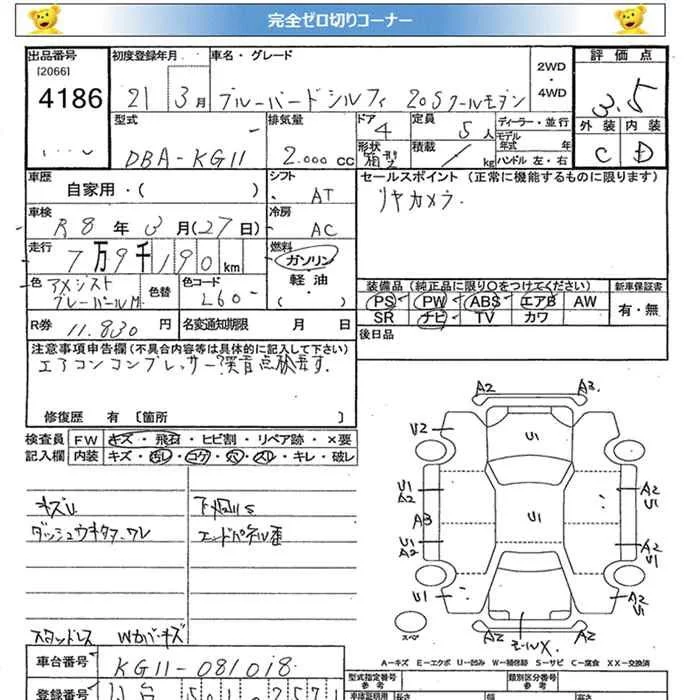 完全ゼロ切りコーナー
出品番号 初度登録年月 車名・グレード 2WD ・ 4WD 評価点
[2066]
4186 21 3月 ブルーバードシルフィ 20Sクールモダン 3.5
型式 排気量 ドア 4 定員 5人 ディーラー・並行 外装 内装
DBA-KG11 2.000cc 形状 箱型 積載 kg モデル年式 年 ハンドル 左・右 C D
車歴 自家用・( ) シフト AT セールスポイント (正常に機能するものに限ります)
リヤカメラ.
車検 R8年3月(27日) 冷房 AC
走行 7万9千190km 燃料 ガソリン・軽油・( )
色 アメジスト グレーパールM 色替 色コード L60 装備品(純正品に限り〇をつけてください) 新車保証書
PS PW ABS エアB AW 有・無
SR ナビ TV カワ
R券 11.830円 名変通知期限 月 日 後日品
注意事項申告欄(不具合内容等は具体的に記入して下さい)
エアコンコンプレッサー?異音点
修復歴 有 〔箇所 〕
検査員 FW キズ・飛石・ヒビ割・リペア跡・×要
記入欄 内装 キズ・汚レ・コゲ・穴・スリ・キレ・破レ
キズU 下廻りS
ダッシュウキタワレ エンドパネル歪
スタッドレス Wカバーキズ
A2 A3
V2 U1
U1 A2 A2 U1
A3 U1
U1 A2 A2 U1
U1 A2 U1
スペア A2 A2
A－キズ E－エクボ U－凹み W－補修跡 S－サビ C－腐食 XX－交換済
車台番号 KG11-081018 型式指定番号 参考 類別区分番号 参考
登録番号 車庫証明用 長さ 幅 高さ